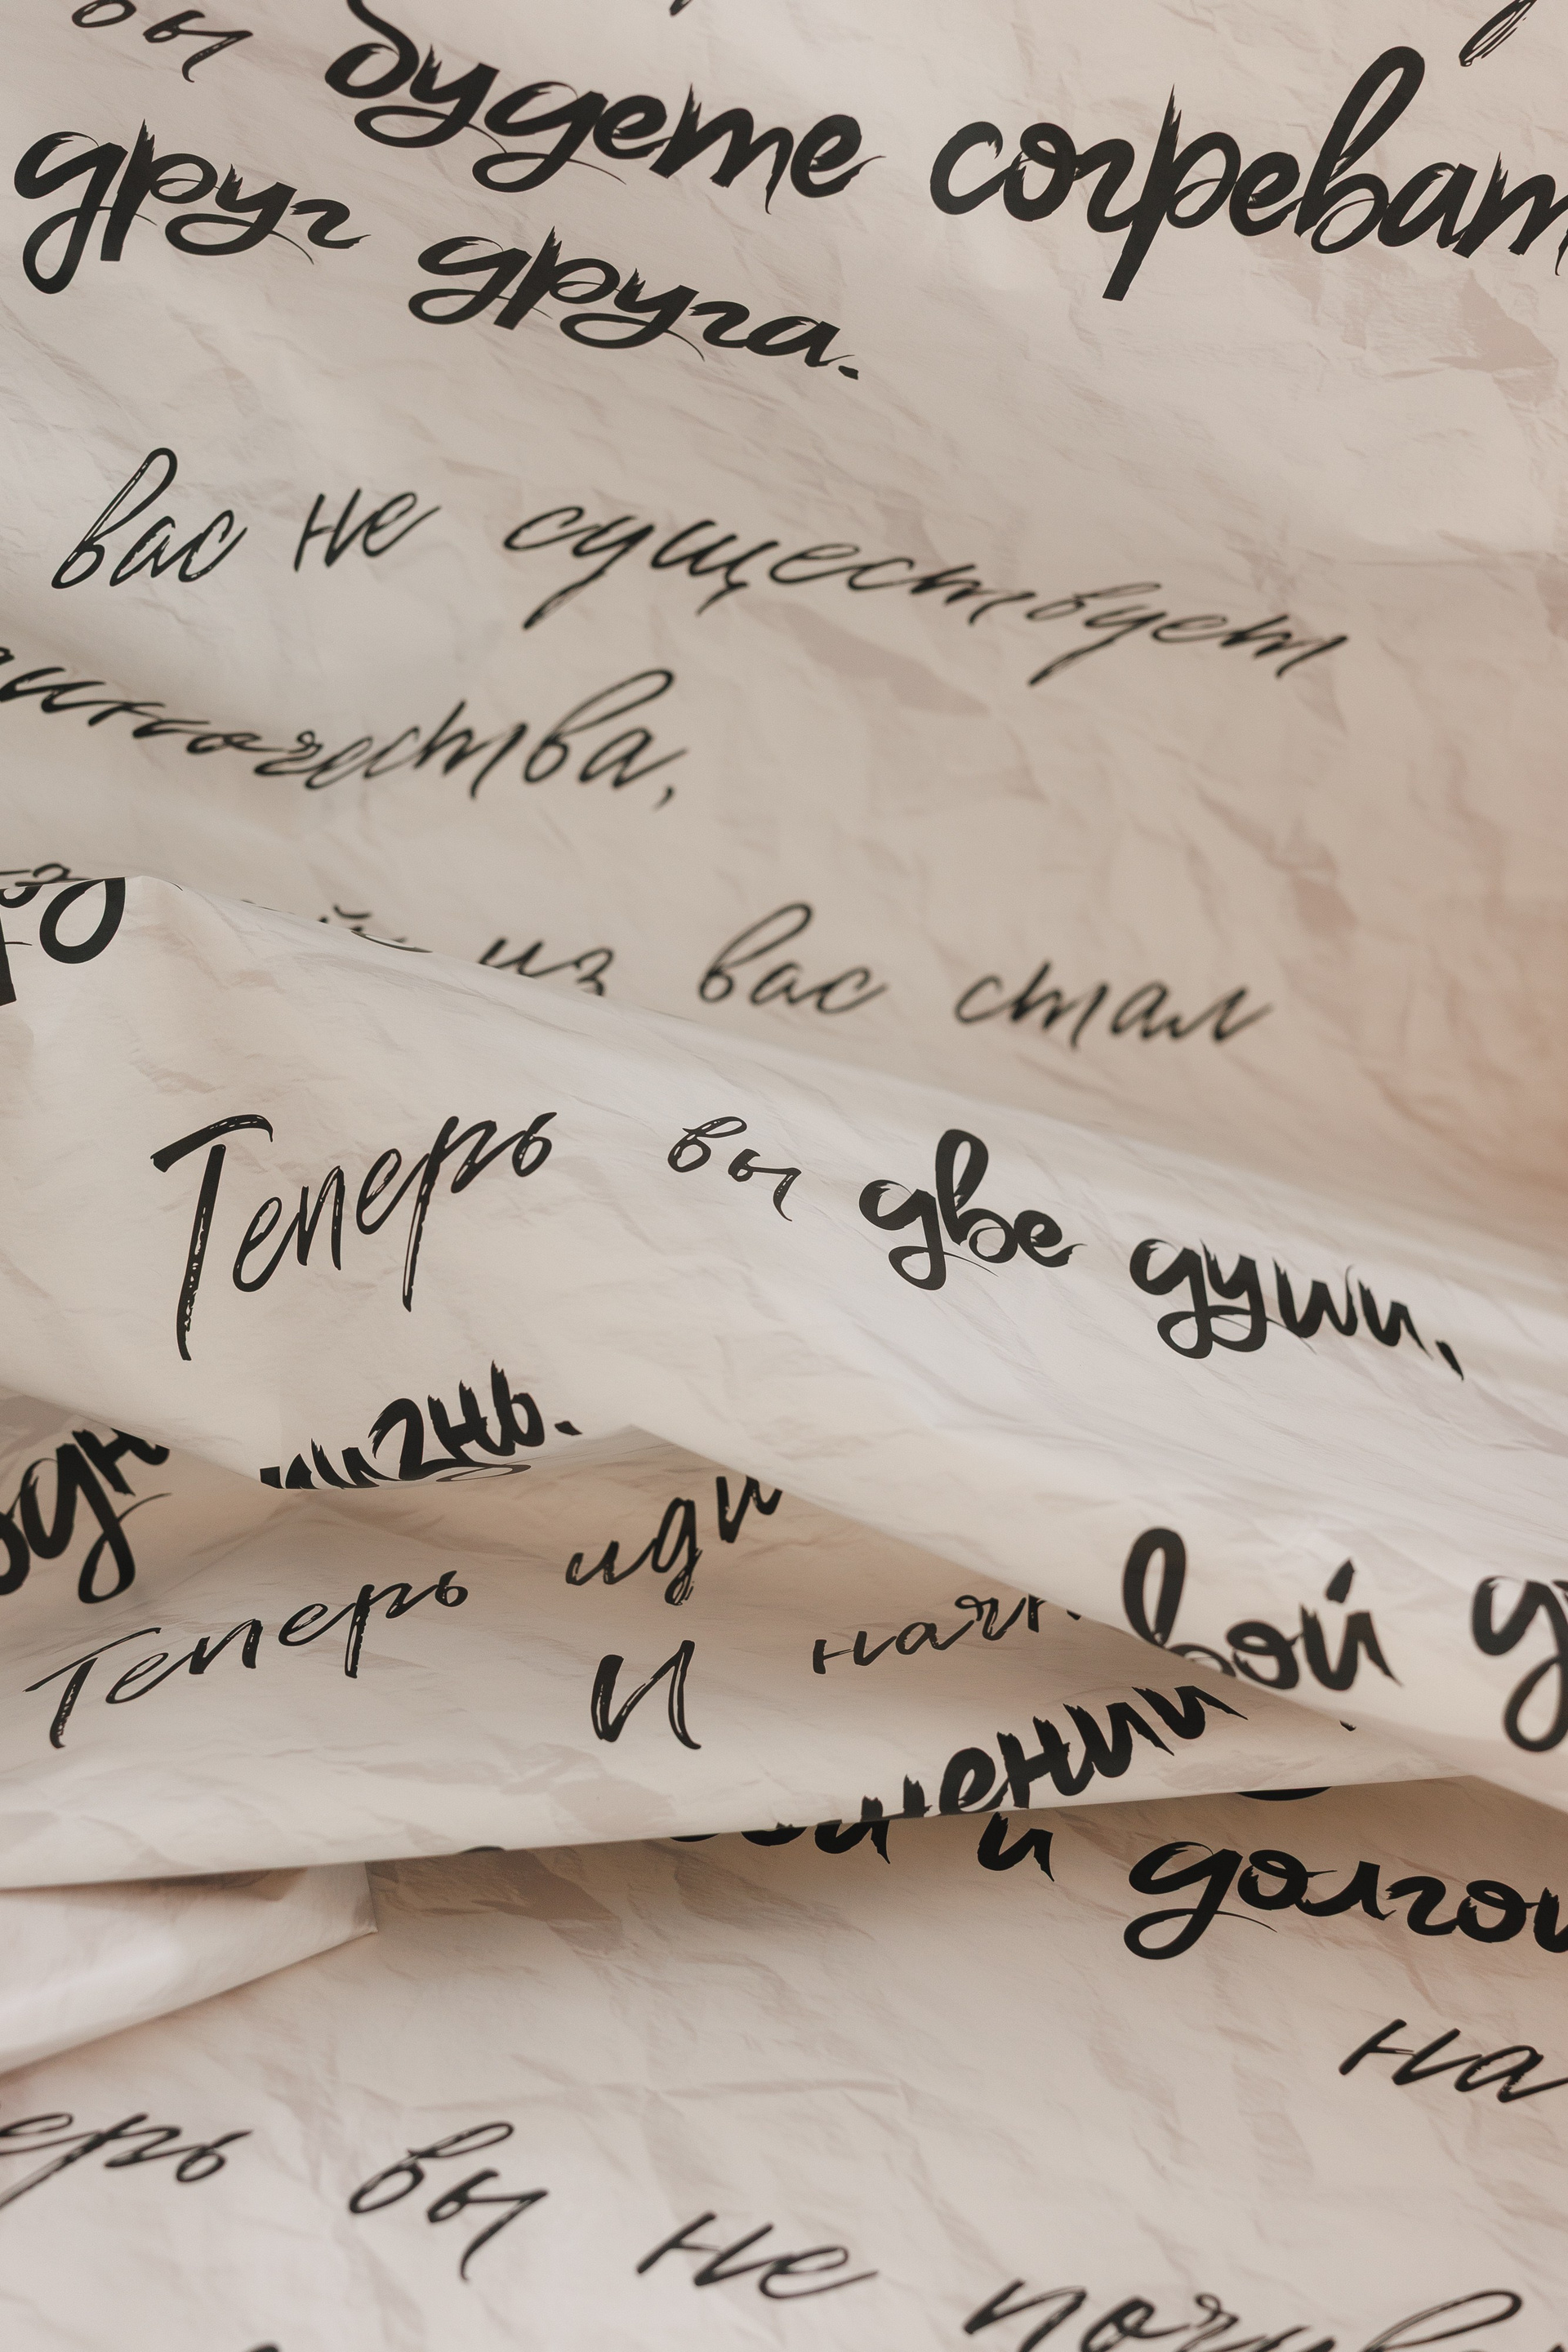 вы будете согреват
друг друга.
вас не существует
иночества,
из вас стал
Теперь вы две души,
жизнь.
Теперь иди
И нач
вой
нении
и долго
на
ерь вы не почув